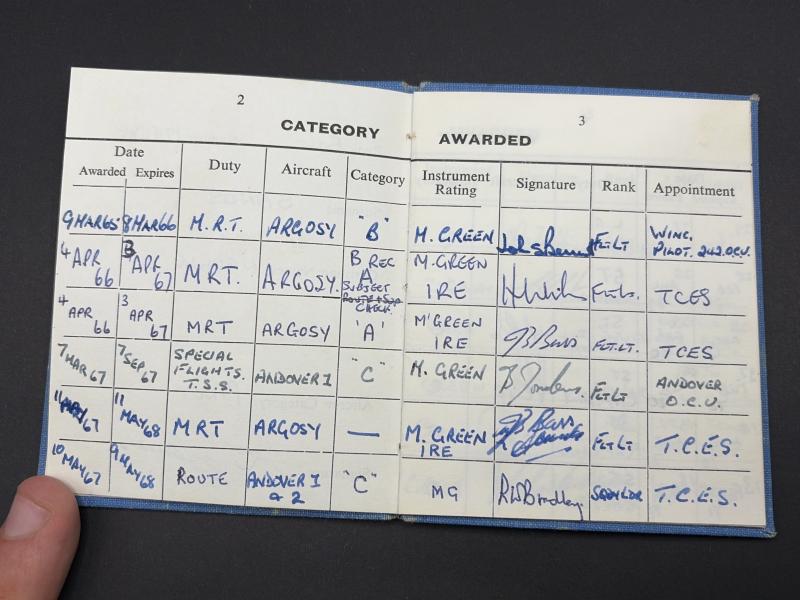 2
3
CATEGORY AWARDED
Date
Awarded Expires Duty Aircraft Category Instrument Rating Signature Rank Appointment
9 MAR 65 8 MAR 66 M.R.T. ARGOSY "B" M. GREEN FLT LT WING. PILOT. 242.OCU.
4 APR 66 3 APR 67 MRT. ARGOSY. B REC A SUBJECT ROUTE + SUP CHECK. M. GREEN IRE TCES
4 APR 66 3 APR 67 MRT ARGOSY 'A' M'GREEN IRE FLT.LT. TCES
7 MAR 67 7 SEP 67 SPECIAL FLIGHTS. T.S.S. ANDOVER 1 "C" M. GREEN FLT LT ANDOVER O.C.U.
67 11 MAY 68 MRT ARGOSY — M. GREEN IRE FLT LT T.C.E.S.
10 MAY 67 9 MAY 68 ROUTE ANDOVER 1 & 2 "C" MG RWBradley SQDN LDR T.C.E.S.